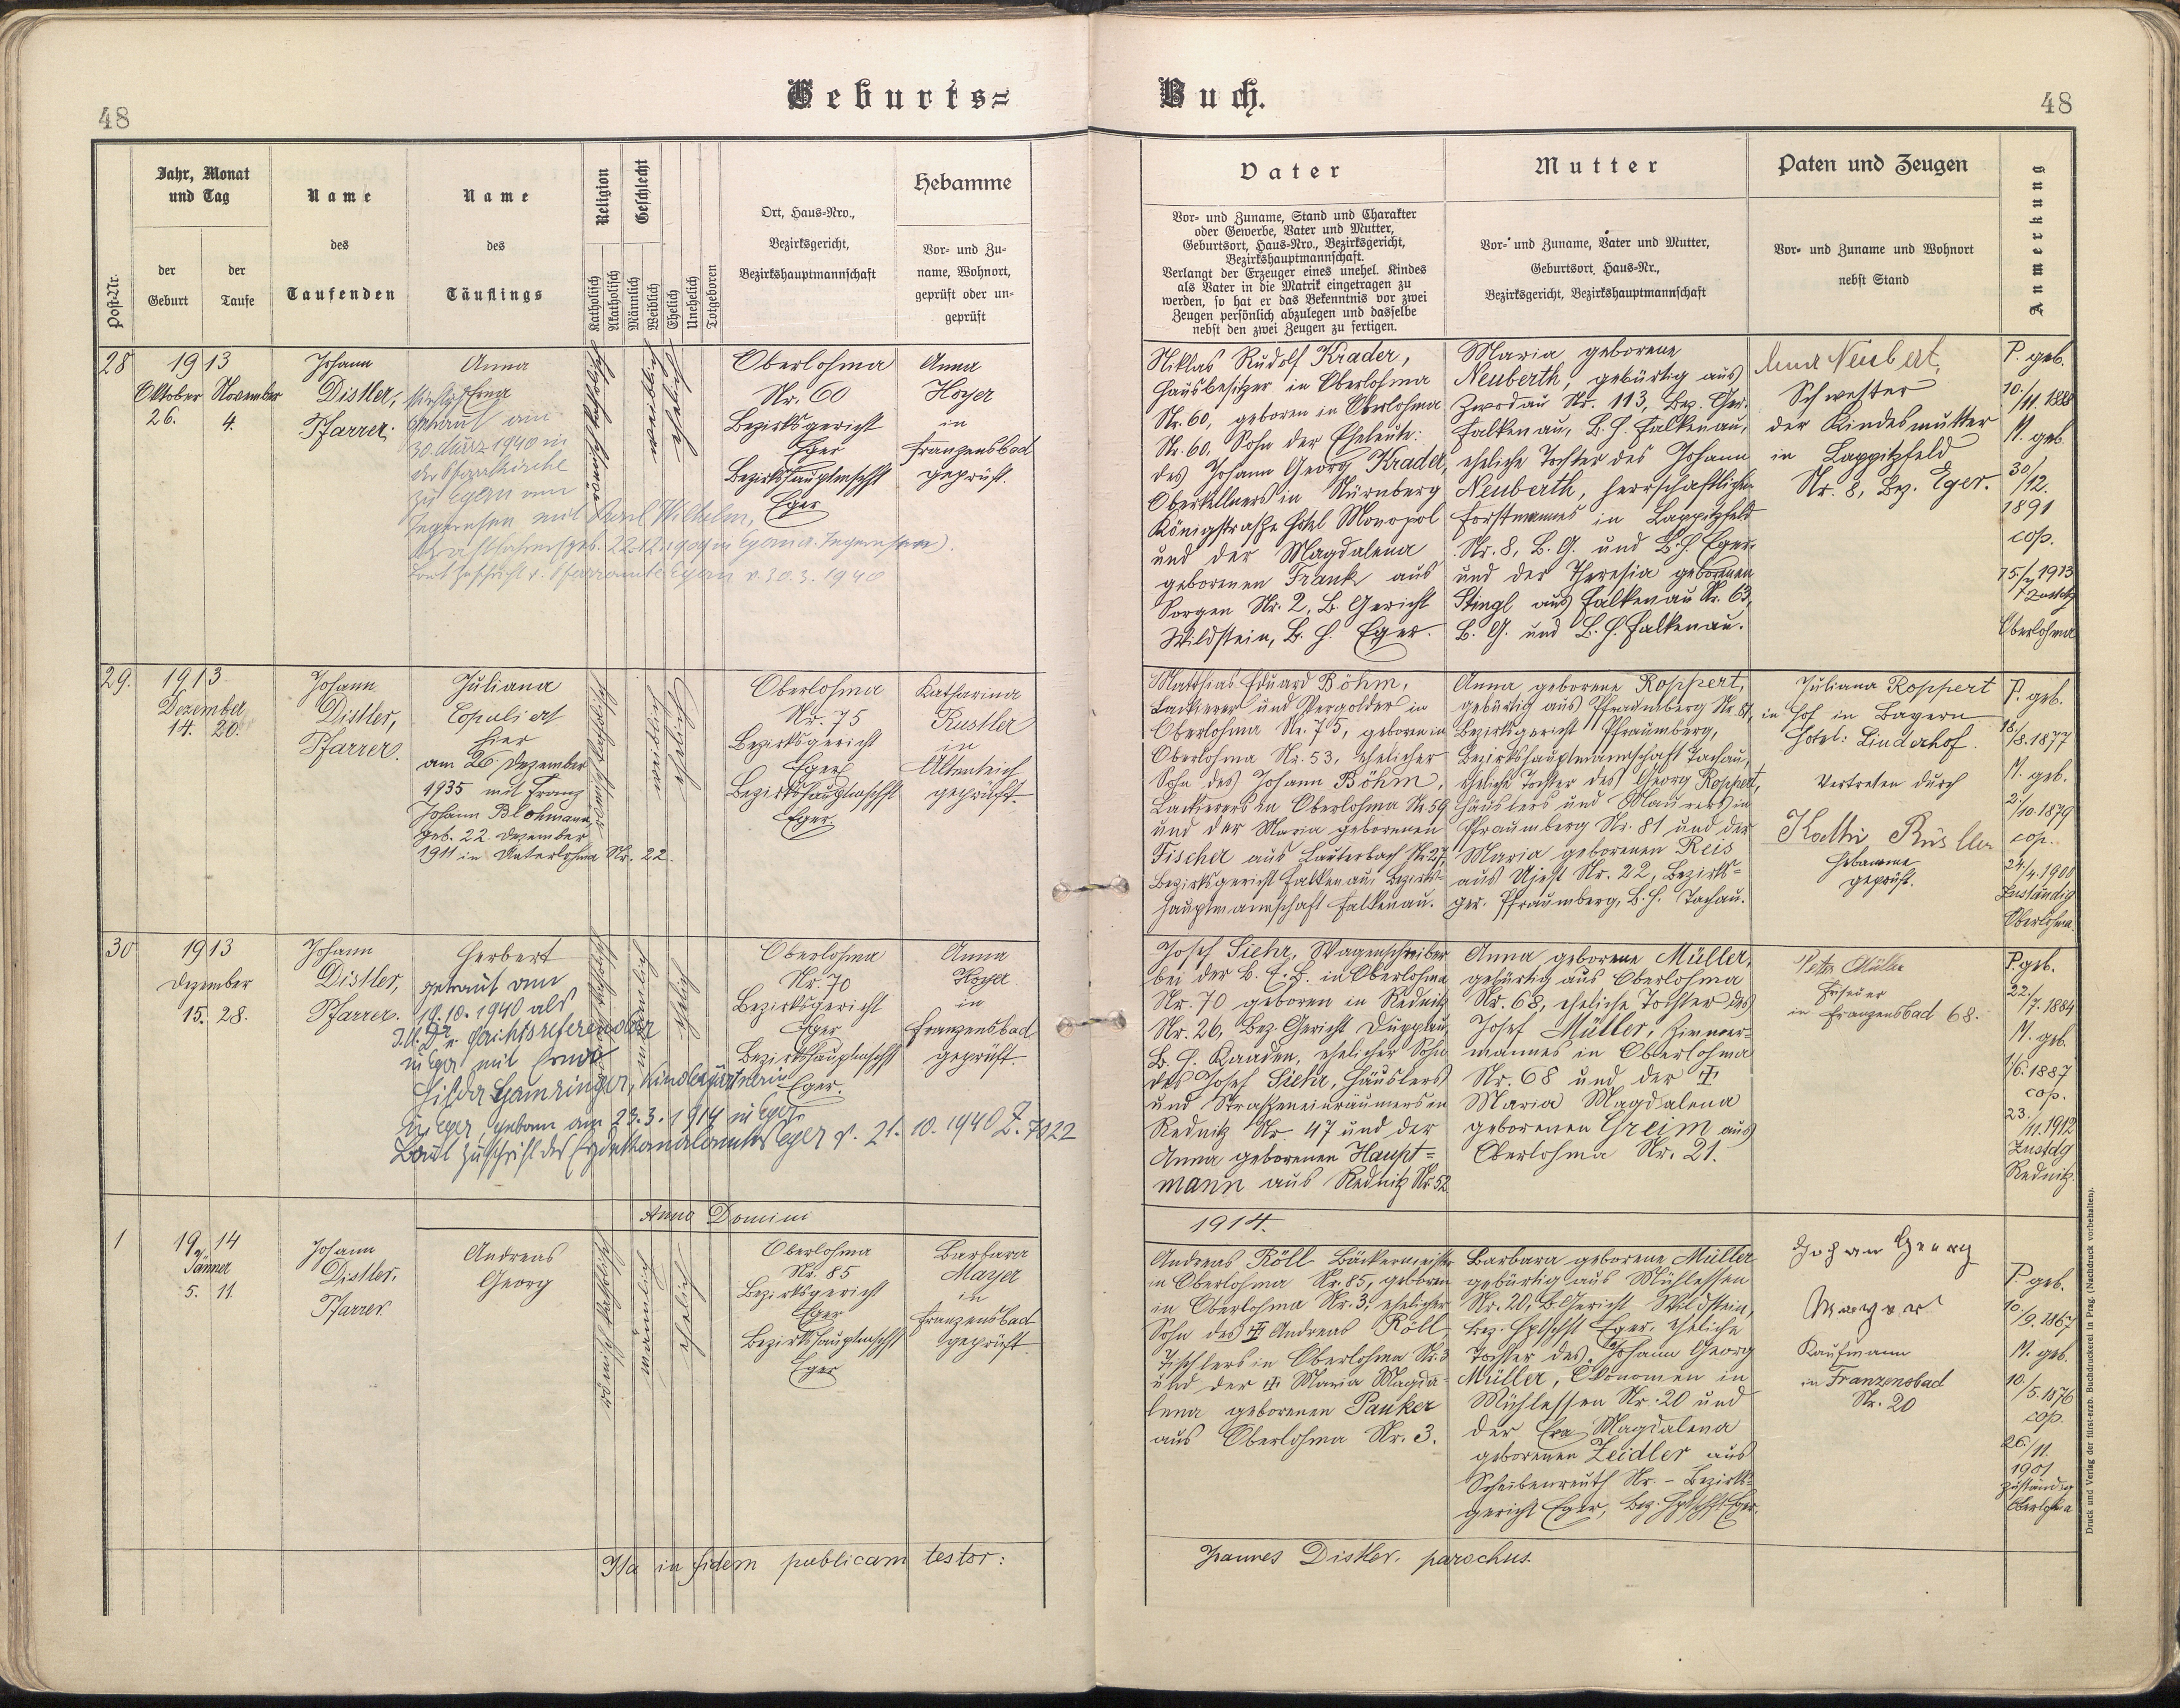 48
Geburts=
Buch.
48
Post-Nr.
Jahr, Monat
und Tag
der
Geburt
der
Taufe
Name
des
Taufenden
Name
des
Täuflings
Religion
Katholisch
Akatholisch
Geschlecht
Männlich
Weiblich
Ehelich
Unehelich
Totgeboren
Ort, Haus-Nro.,
Bezirksgericht,
Bezirkshauptmannschaft
Hebamme
Vor- und Zu-
name, Wohnort,
geprüft oder un-
geprüft
Vater
Vor- und Zuname, Stand und Charakter
oder Gewerbe, Vater und Mutter,
Geburtsort, Haus-Nro., Bezirksgericht,
Bezirkshauptmannschaft.
Verlangt der Erzeuger eines unehel. Kindes
als Vater in die Matrik eingetragen zu
werden, so hat er das Bekenntnis vor zwei
Zeugen persönlich abzulegen und dasselbe
nebst den zwei Zeugen zu fertigen.
Mutter
Vor- und Zuname, Vater und Mutter,
Geburtsort, Haus-Nr.,
Bezirksgericht, Bezirkshauptmannschaft
Paten und Zeugen
Vor- und Zuname und Wohnort
nebst Stand
Anmerkung
28
1913
Oktober November
26. 4.
Johann
Distler,
Pfarrer.
Anna
Erna
getraut am
30. März 1940 in
der Pfarrkirche
zu Egern am
Tegernsee mit Karl Wilhelm,
Kraftfahrer (geb. 22.12.1909 in Egern a. Tegernsee).
Laut Zuschrift v. Pfarramte Egern v. 30.3.1940
römisch katholisch
weiblich
ehelich
Oberlohma
Nr. 60
Bezirksgericht
Eger
Bezirkshauptmschft
Eger
Anna
Hoyer
in
Franzensbad
geprüft.
Niklas Rudolf Krader,
Hausbesitzer in Oberlohma
Nr. 60, geboren in Oberlohma
Nr. 60, Sohn der Eheleute:
des Johann Georg Krader,
Oberkellners in Nürnberg
Königstraße Hotel Monopol
und der Magdalena
geborenen Frank aus
Sorgen Nr. 2, B. Gericht
Wildstein, B. H. Eger.
Maria geborene
Neuberth, gebürtig aus
Zwodau Nr. 113, Bez. Ger.
Falkenau, B. H. Falkenau,
eheliche Tochter des Johann
Neuberth, herrschaftlichen
Forstmannes in Lappitzfeld
Nr. 8, B. G. und B. H. Eger
und der Theresia geborenen
Stingl aus Falkenau Nr. 63,
B. G. und B. H. Falkenau.
Anna Neubert,
Schwester
der Kindesmutter
in Lappitzfeld
Nr. 8, Bez. Eger.
P. geb.
10./11. 1888
M. geb.
30/12.
1891
cop.
15./7 1913
Oberlohma
29.
1913
Dezember
14. 20.
Johann
Distler,
Pfarrer.
Juliana
Copuliert
hier
am 26. Dezember
1935 mit Franz
Johann Blohmann,
geb. 22. Dezember
1911 in Unterlohma Nr. 22.
römisch katholisch
weiblich
ehelich
Oberlohma
Nr. 75
Bezirksgericht
Eger
Bezirkshauptmschft
Eger.
Katharina
Rustler
in
Altenteich
geprüft.
Matthias Eduard Böhm,
Lackierer und Vergolder in
Oberlohma Nr. 75, geboren in
Oberlohma Nr. 53, ehelicher
Sohn des Johann Böhm,
Lackierers in Oberlohma Nr. 59
und der Maria geborenen
Fischer aus Lauterbach Nr. 27,
Bezirksgericht Falkenau, Bezirks=
hauptmannschaft Falkenau.
Anna geborene Roppert,
gebürtig aus Pfraumberg Nr. 81,
Bezirksgericht Pfraumberg,
Bezirkshauptmannschaft Tachau,
eheliche Tochter des Georg Roppert,
Häuslers und Maurers in
Pfraumberg Nr. 81 und der
Maria geborenen Reis
aus Ujest Nr. 22, Bezirks=
ger. Pfraumberg, B. H. Tachau.
Juliana Roppert
in Hof in Bayern
Hotel: Linderhof.
Vertreten durch
Kathi Rustler
Hebamme
geprüft.
P. geb.
18./8. 1877
M. geb.
2./10. 1879
cop.
24./4. 1900
Zuständig
Oberlohma.
30
1913
Dezember
15. 28.
Johann
Distler,
Pfarrer.
Herbert
getraut am
19.10.1940 als
J.U.Dr. u. Gerichtsreferendar
in Eger mit Erna
Hilda Gamringer, Kindergärtnerin
in Eger geboren am 23.3.1914 in Eger.
Laut Zuschrift des Erzdekanalamtes Eger v. 21.10.1940 Z. 7122
römisch katholisch
männlich
ehelich
Oberlohma
Nr. 70
Bezirksgericht
Eger
Bezirkshauptmschft
Eger.
Anna
Hoyer
in
Franzensbad
geprüft.
Josef Siehr, Wagenschreiber
bei der B. E. B. in Oberlohma
Nr. 70 geboren in Rednitz
Nr. 26, Bez. Gericht Duppau,
B. H. Kaaden, ehelicher Sohn
des Josef Siehr, Häuslers
und Straßeneinräumers in
Rednitz Nr. 47 und der
Anna geborenen Haupt=
mann aus Rednitz Nr. 52
Anna geborene Müller,
gebürtig aus Oberlohma
Nr. 68, eheliche Tochter des
Josef Müller, Zimmer=
mannes in Oberlohma
Nr. 68 und der ✝
Maria Magdalena
geborenen Greim aus
Oberlohma Nr. 21.
Peter Müller
Friseuer
in Franzensbad 68.
P. geb.
22./7. 1884
M. geb.
1/6. 1887
cop.
23./11. 1912
Zustdg
Rednitz.
Anno Domini
1914.
1
1914
Jänner
5. 11.
Johann
Distler,
Pfarrer
Andreas
Georg
römisch katholisch
männlich
ehelich
Oberlohma
Nr. 85
Bezirksgericht
Eger
Bezirkshauptmschft
Eger
Barbara
Mayer
in
Franzensbad
geprüft.
Andreas Röll Bäckermeister
in Oberlohma Nr. 85, geboren
in Oberlohma Nr. 3, ehelicher
Sohn des ✝ Andreas Röll,
Tischlers in Oberlohma Nr. 3
und der ✝ Maria Magda=
lena geborenen Pauker
aus Oberlohma Nr. 3.
Barbara geborene Müller
gebürtig aus Mühlessen
Nr. 20, B. Gericht Wildstein,
Bez. Hptschft Eger, eheliche
Tochter des Johann Georg
Müller, Ökonomen in
Mühlessen Nr. 20 und
der Eva Magdalena
geborenen Zeidler aus
Scheibenreuth Nr. - Bezirks=
gericht Eger, Bez. Hptschft Eger.
Johan Georg
Kaufmann
in Franzensbad
Nr. 20
P. geb.
10./9. 1867
M. geb.
10./5. 1876
cop.
26./11.
1901
zuständig
Oberlohma
Ita in fidem publicam testor:
Joannes Distler, parochus.
Druck und Verlag der fürst-erzb. Buchdruckerei in Prag. (Nachdruck vorbehalten).